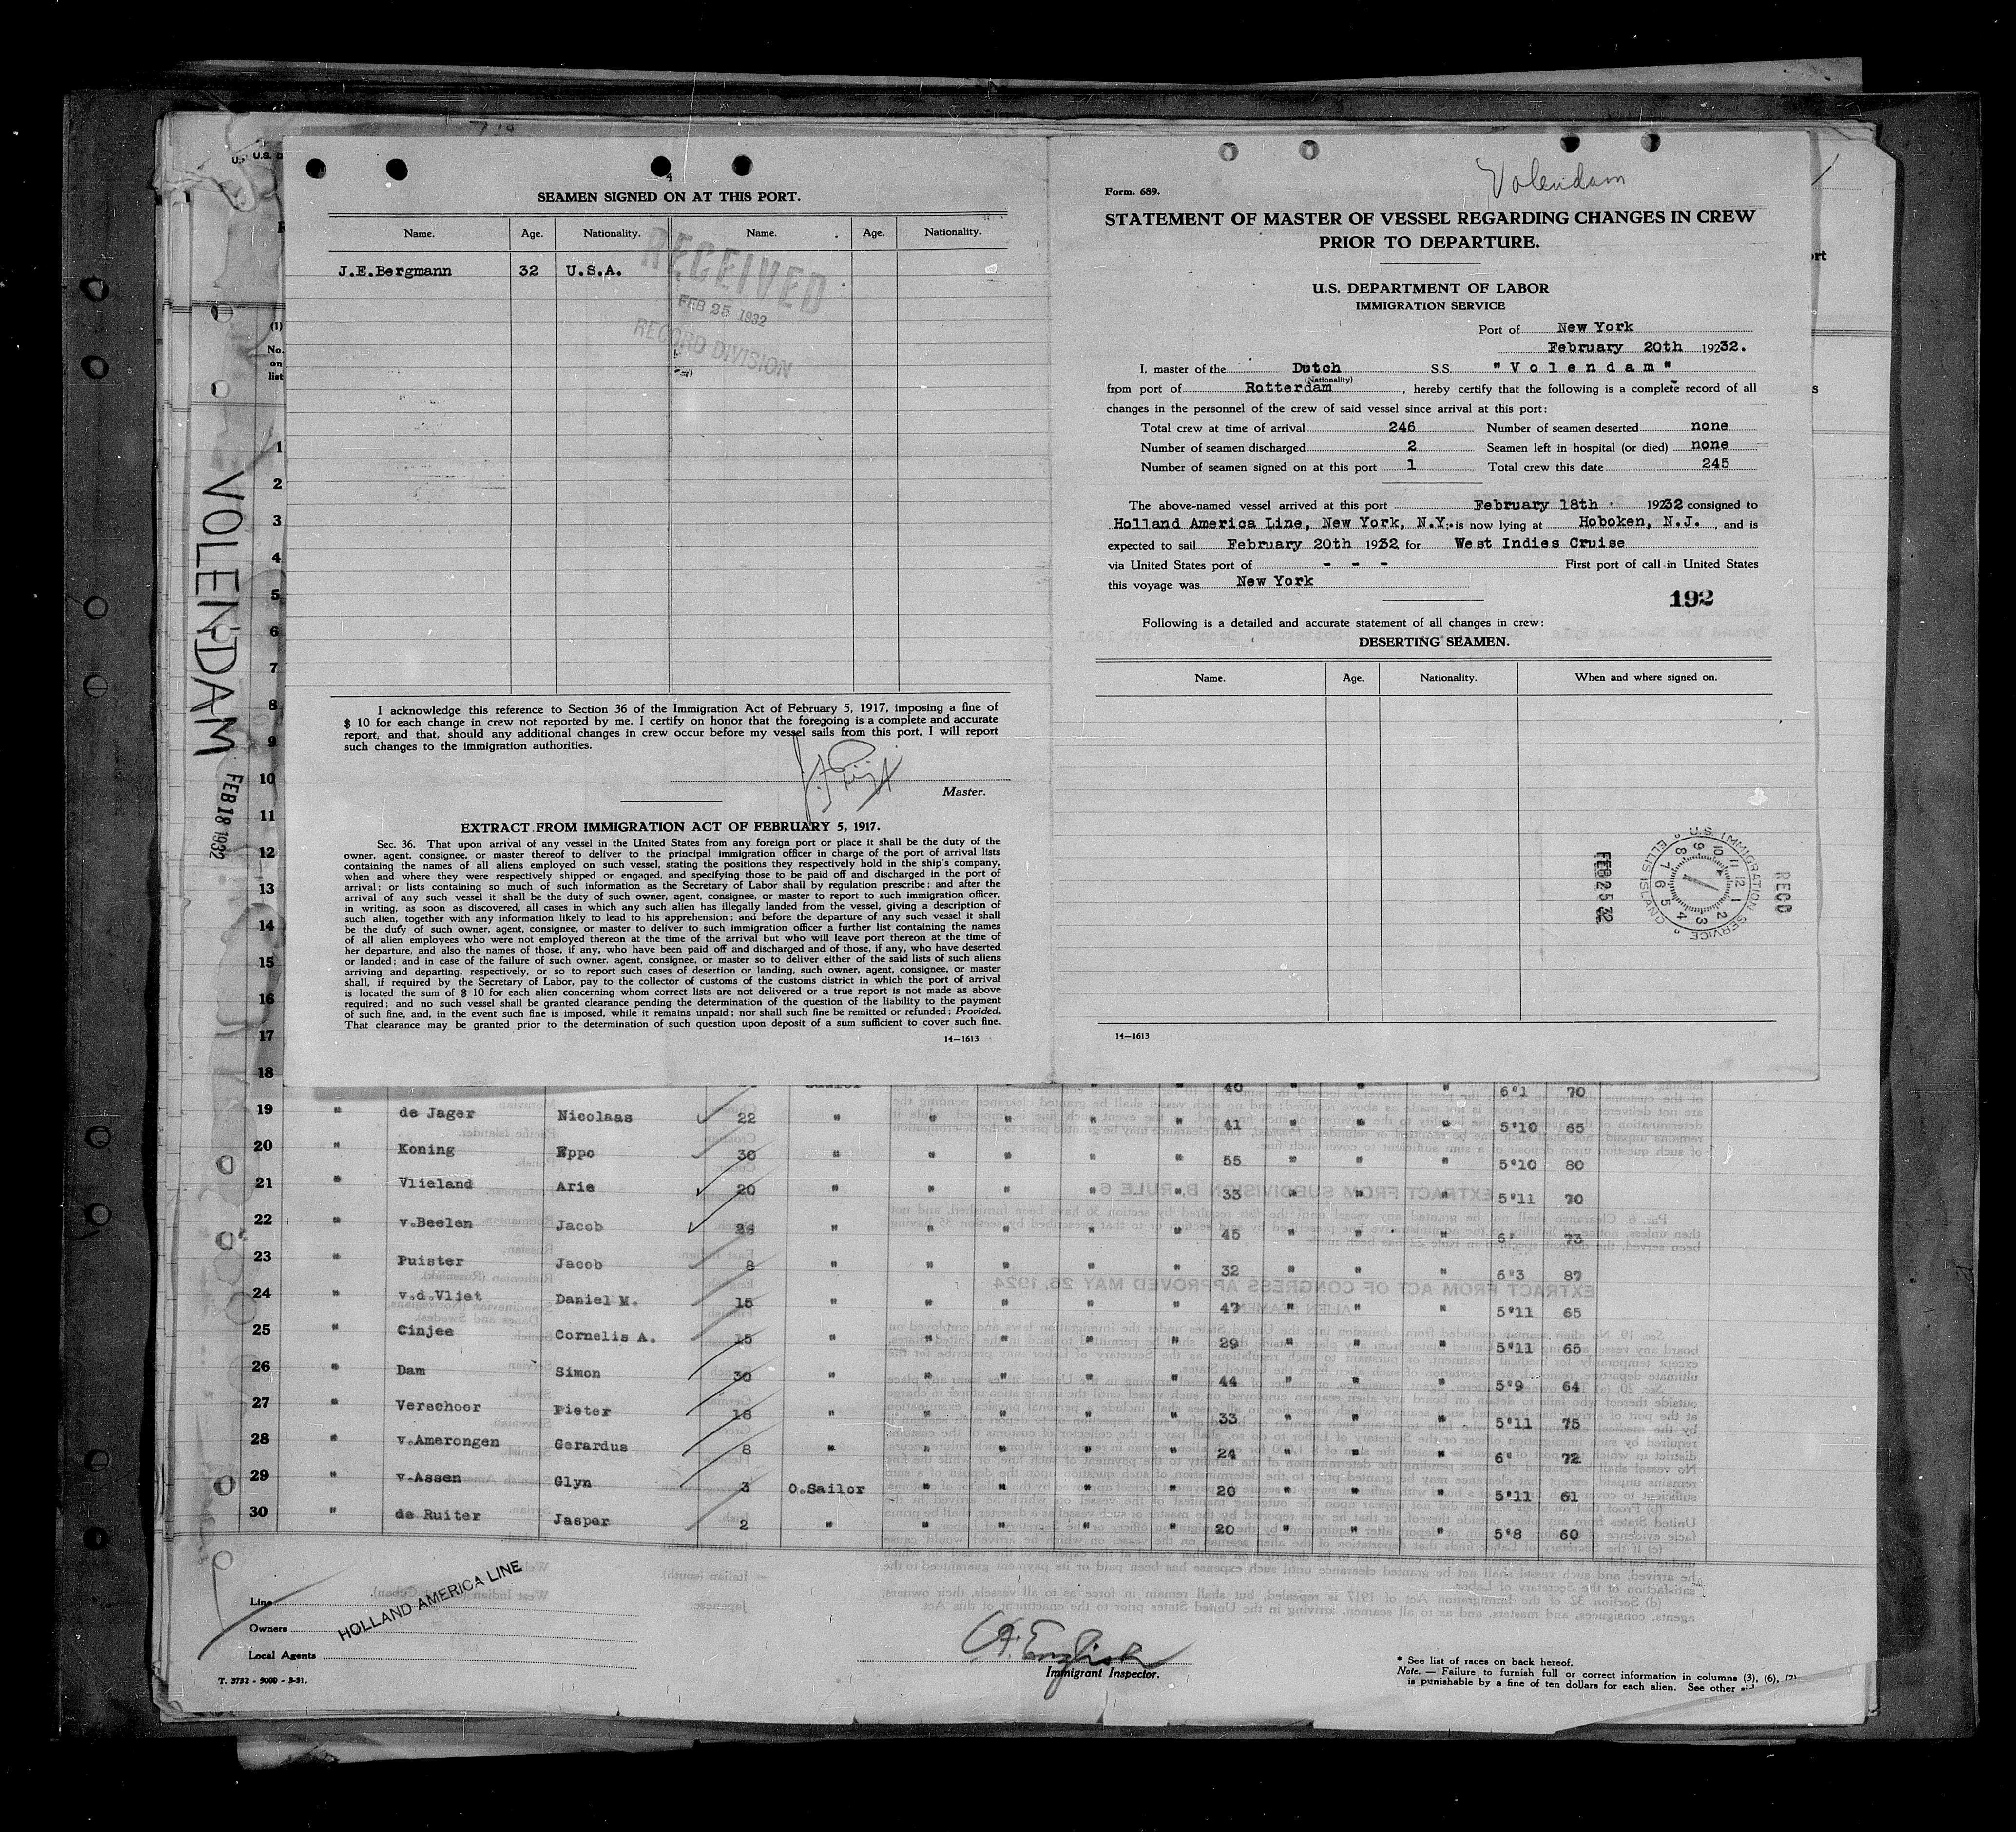 4
SEAMEN SIGNED ON AT THIS PORT.
Name. Age. Nationality. Name. Age. Nationality.
J.E.Bergmann 32 U.S.A.
RECEIVED
FEB 25 1932
RECORD DIVISION
I acknowledge this reference to Section 36 of the Immigration Act of February 5, 1917, imposing a fine of
$ 10 for each change in crew not reported by me. I certify on honor that the foregoing is a complete and accurate
report, and that, should any additional changes in crew occur before my vessel sails from this port, I will report
such changes to the immigration authorities.
Master.
EXTRACT FROM IMMIGRATION ACT OF FEBRUARY 5, 1917.
Sec. 36. That upon arrival of any vessel in the United States from any foreign port or place it shall be the duty of the
owner, agent, consignee, or master thereof to deliver to the principal immigration officer in charge of the port of arrival lists
containing the names of all aliens employed on such vessel, stating the positions they respectively hold in the ship's company,
when and where they were respectively shipped or engaged, and specifying those to be paid off and discharged in the port of
arrival; or lists containing so much of such information as the Secretary of Labor shall by regulation prescribe; and after the
arrival of any such vessel it shall be the duty of such owner, agent, consignee, or master to report to such immigration officer,
in writing, as soon as discovered, all cases in which any such alien has illegally landed from the vessel, giving a description of
such alien, together with any information likely to lead to his apprehension; and before the departure of any such vessel it shall
be the duty of such owner, agent, consignee, or master to deliver to such immigration officer a further list containing the names
of all alien employees who were not employed thereon at the time of the arrival but who will leave port thereon at the time of
her departure, and also the names of those, if any, who have been paid off and discharged and of those, if any, who have deserted
or landed; and in case of the failure of such owner, agent, consignee, or master so to deliver either of the said lists of such aliens
arriving and departing, respectively, or so to report such cases of desertion or landing, such owner, agent, consignee, or master
shall, if required by the Secretary of Labor, pay to the collector of customs of the customs district in which the port of arrival
is located the sum of $ 10 for each alien concerning whom correct lists are not delivered or a true report is not made as above
required; and no such vessel shall be granted clearance pending the determination of the question of the liability to the payment
of such fine, and, in the event such fine is imposed, while it remains unpaid; nor shall such fine be remitted or refunded: Provided,
That clearance may be granted prior to the determination of such question upon deposit of a sum sufficient to cover such fine.
14—1613
Volendam
Form. 689.
STATEMENT OF MASTER OF VESSEL REGARDING CHANGES IN CREW
PRIOR TO DEPARTURE.
U.S. DEPARTMENT OF LABOR
IMMIGRATION SERVICE
Port of New York
February 20th 19232.
I, master of the Dutch S.S. "Volendam"
(Nationality)
from port of Rotterdam, hereby certify that the following is a complete record of all
changes in the personnel of the crew of said vessel since arrival at this port:
Total crew at time of arrival 246 Number of seamen deserted none
Number of seamen discharged 2 Seamen left in hospital (or died) none
Number of seamen signed on at this port 1 Total crew this date 245
The above-named vessel arrived at this port February 18th 19232 consigned to
Holland America Line, New York, N.Y.; is now lying at Hoboken, N.J., and is
expected to sail February 20th 1932, for West Indies Cruise
via United States port of - - - First port of call in United States
this voyage was New York
192
Following is a detailed and accurate statement of all changes in crew:
DESERTING SEAMEN.
Name. Age. Nationality. When and where signed on.
FEB 25 32
U.S. IMMIGRATION SERVICE
ELLIS ISLAND
RECD
14—1613
VOLENDAM
FEB 18 1932
(1)
No.
on
list
1
2
3
4
5
6
7
8
9
10
11
12
13
14
15
16
17
18 Sailor 40 " " " 6'1 70
19 " de Jager Nicolaas 22 " " " " " 41 " " " 5'10 65
20 " Koning Eppo 30 " " " " " 55 " " " 5'10 80
21 " Vlieland Arie 20 " " " " " 33 " " " 5'11 70
22 " v.Beelen Jacob 26 " " " " " 45 " " " 6' 73
23 " Puister Jacob 8 " " " " " 32 " " " 6'3 87
24 " v.d.Vliet Daniel M. 15 " " " " " 47 " " " 5'11 65
25 " Cinjee Cornelis A. 15 " " " " " 29 " " " 5'11 65
26 " Dam Simon 30 " " " " " 44 " " " 5'9 64
27 " Verschoor Pieter 18 " " " " " 33 " " " 5'11 75
28 " v.Amerongen Gerardus 8 " " " " " 24 " " " 6' 72
29 " v.Assen Glyn 3 O.Sailor " " " " 20 " " " 5'11 61
30 " de Ruiter Jasper 2 " " " " " 20 " " " 5'8 60
Line
Owners HOLLAND AMERICA LINE
Local Agents
T. 3732 - 5000 - 3-31.
A. English
Immigrant Inspector.
* See list of races on back hereof.
Note. — Failure to furnish full or correct information in columns (3), (6), (7)
is punishable by a fine of ten dollars for each alien. See other